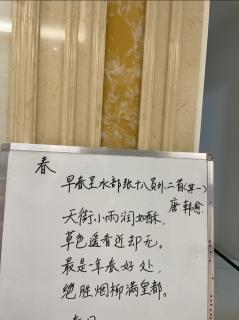 春
早春呈水部张十八员外二首(其一)
唐 韩愈
天街小雨润如酥,
草色遥看近却无。
最是一年春好处,
绝胜烟柳满皇都。